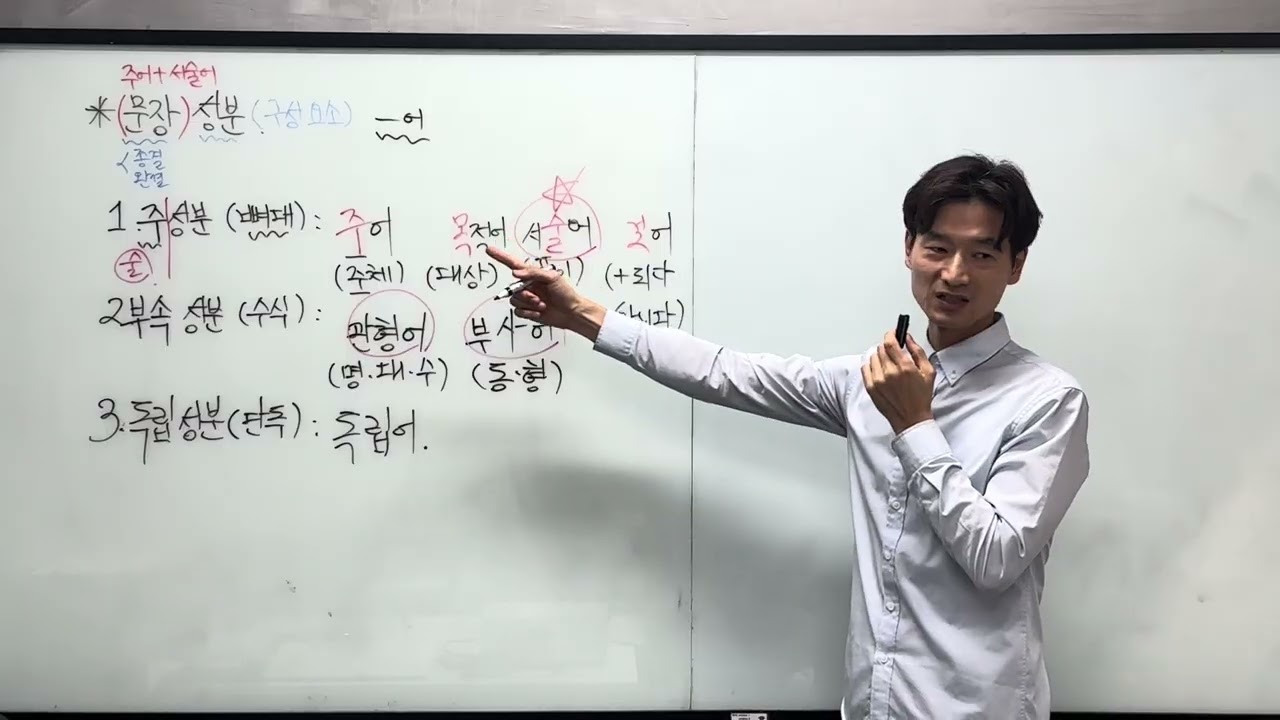 주어+서술어
*(문장)성분(구성요소) -어
<종결
완결
1.주성분(뼈대): 주어 목적어 서술어 보어
술 (주체) (대상) (+되다
2부속 성분(수식): 관형어 부사어 아니다)
(명.대.수) (동.형)
3.독립성분(단독): 독립어.